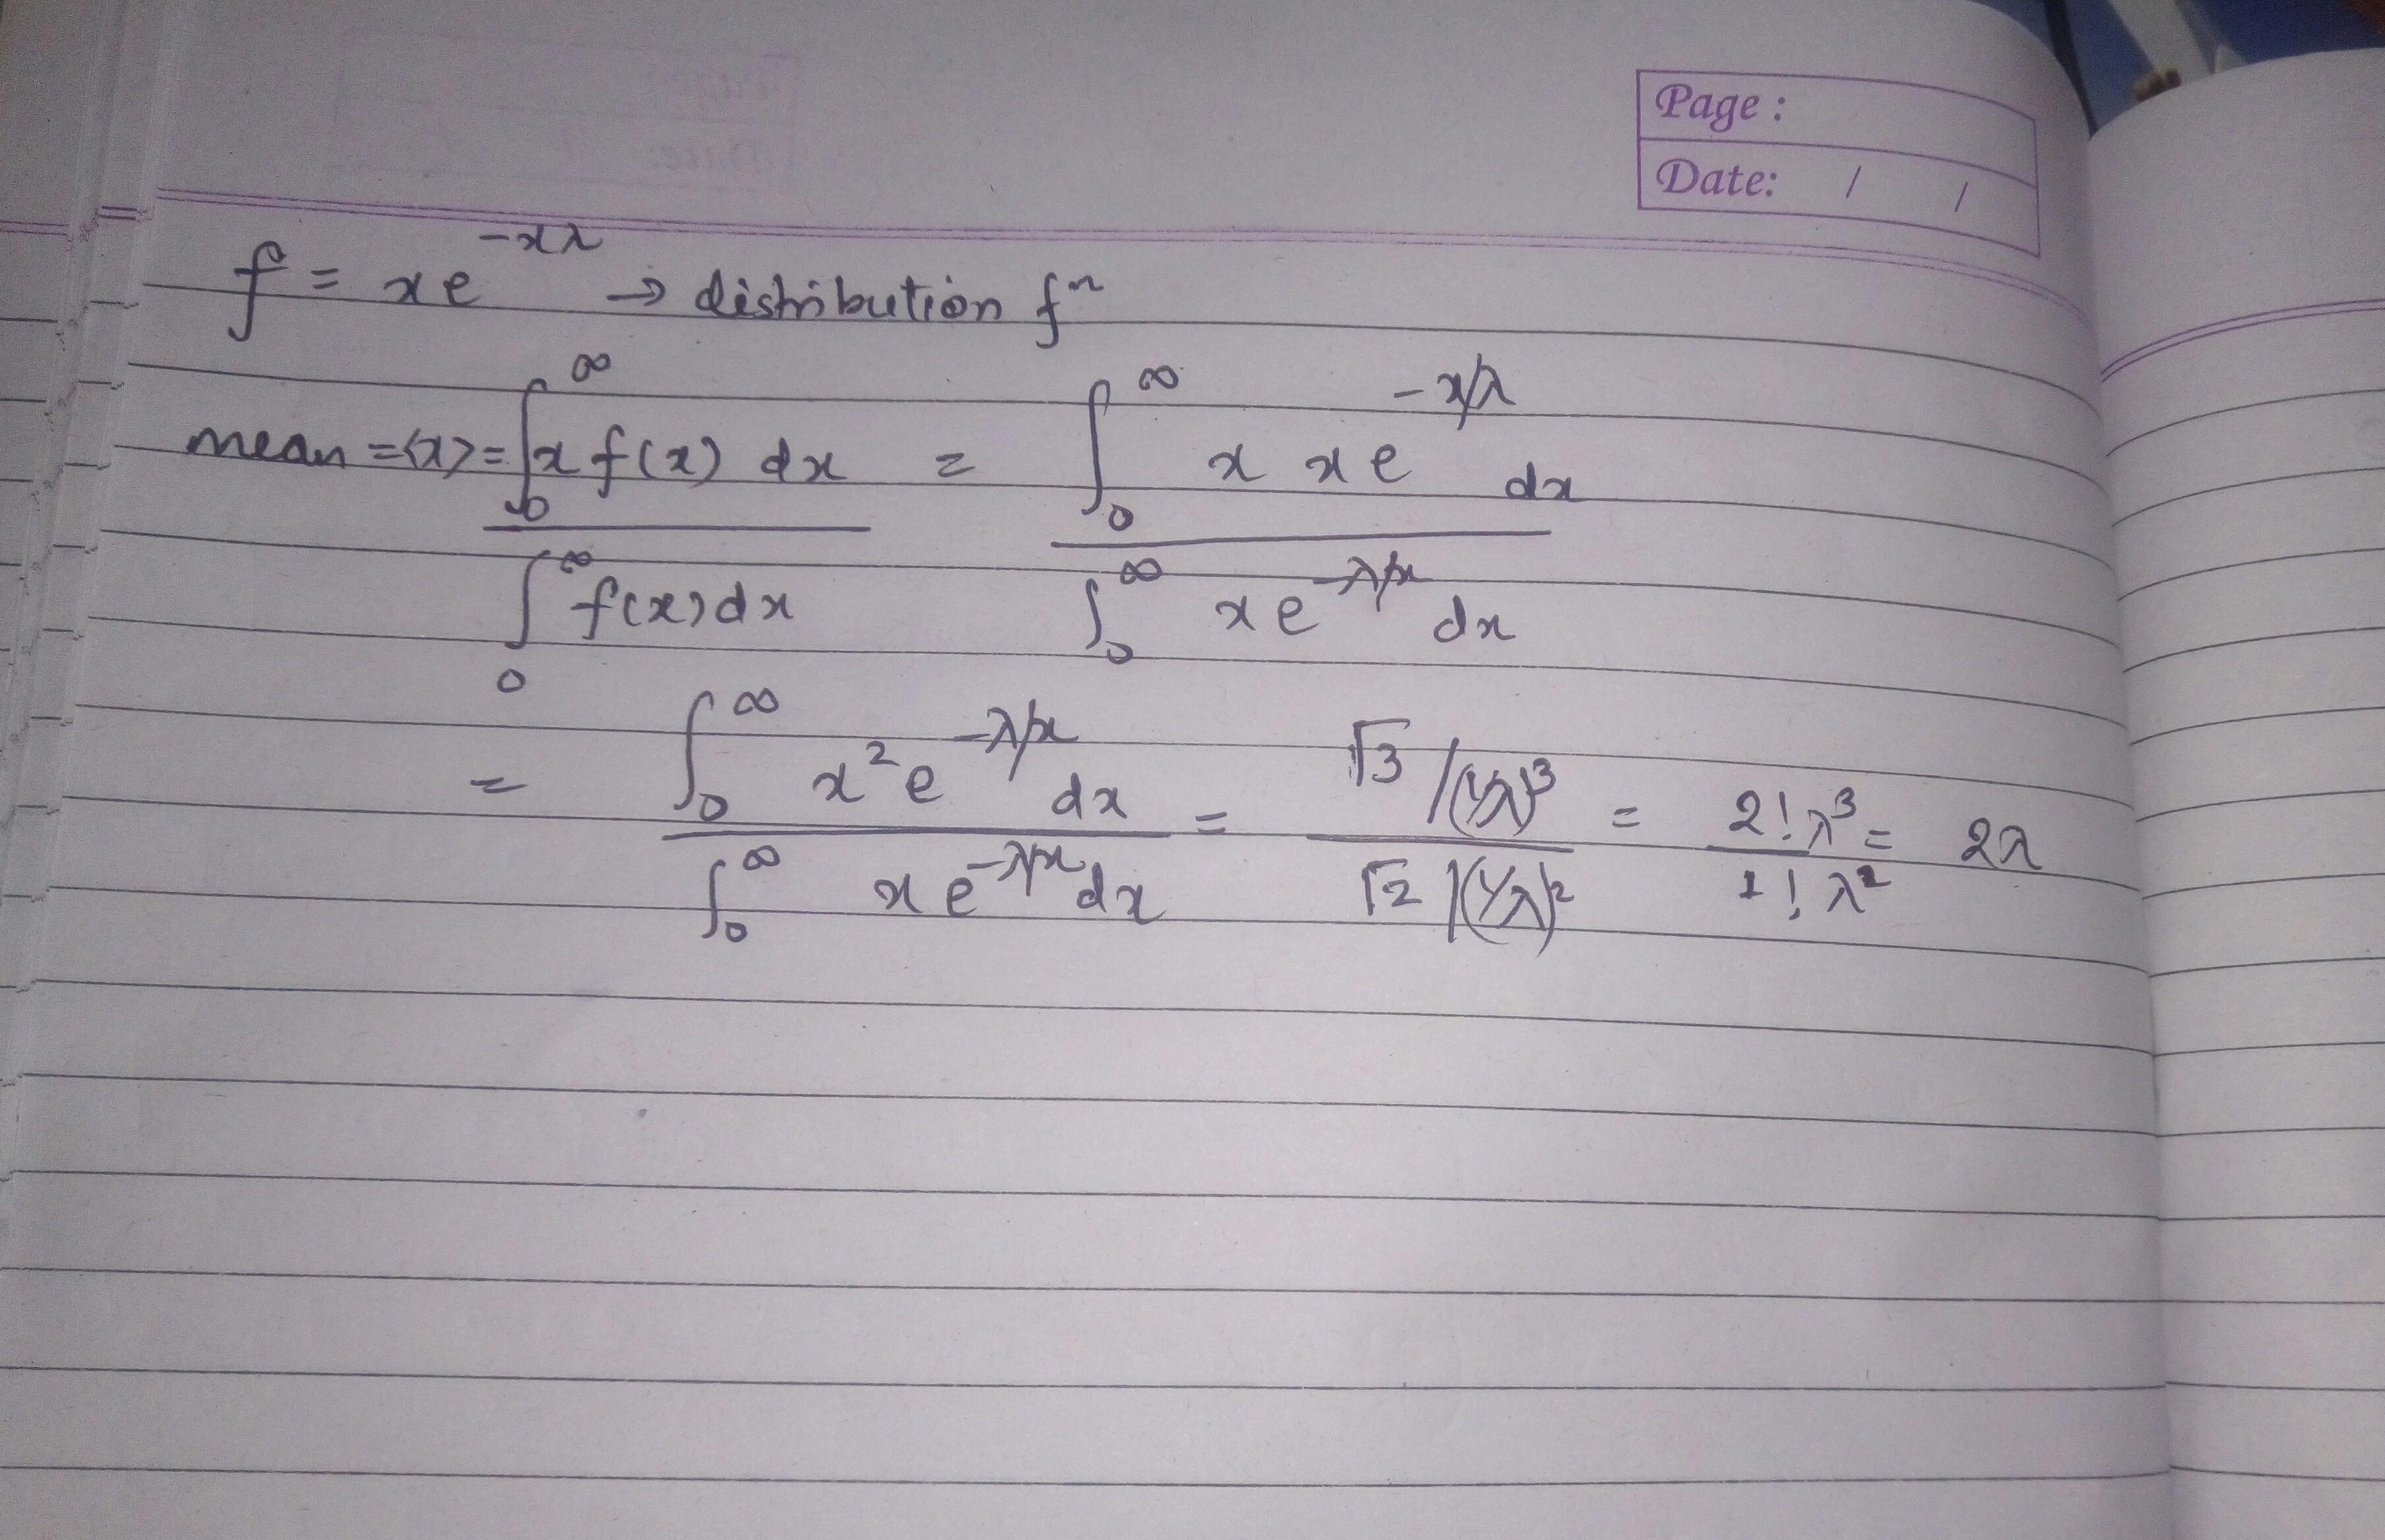 Page :
Date: / /
f = x e^{-xλ} → distribution fⁿ
mean = <x> = ∫₀^∞ x f(x) dx / ∫₀^∞ f(x) dx = ∫₀^∞ x x e^{-x/λ} dx / ∫₀^∞ x e^{-λ/x} dx
= ∫₀^∞ x² e^{-λ/x} dx / ∫₀^∞ x e^{-λ/x} dx = Γ3 /(1/λ)³ / Γ2 /(1/λ)² = 2! λ³ / 1! λ² = 2λ